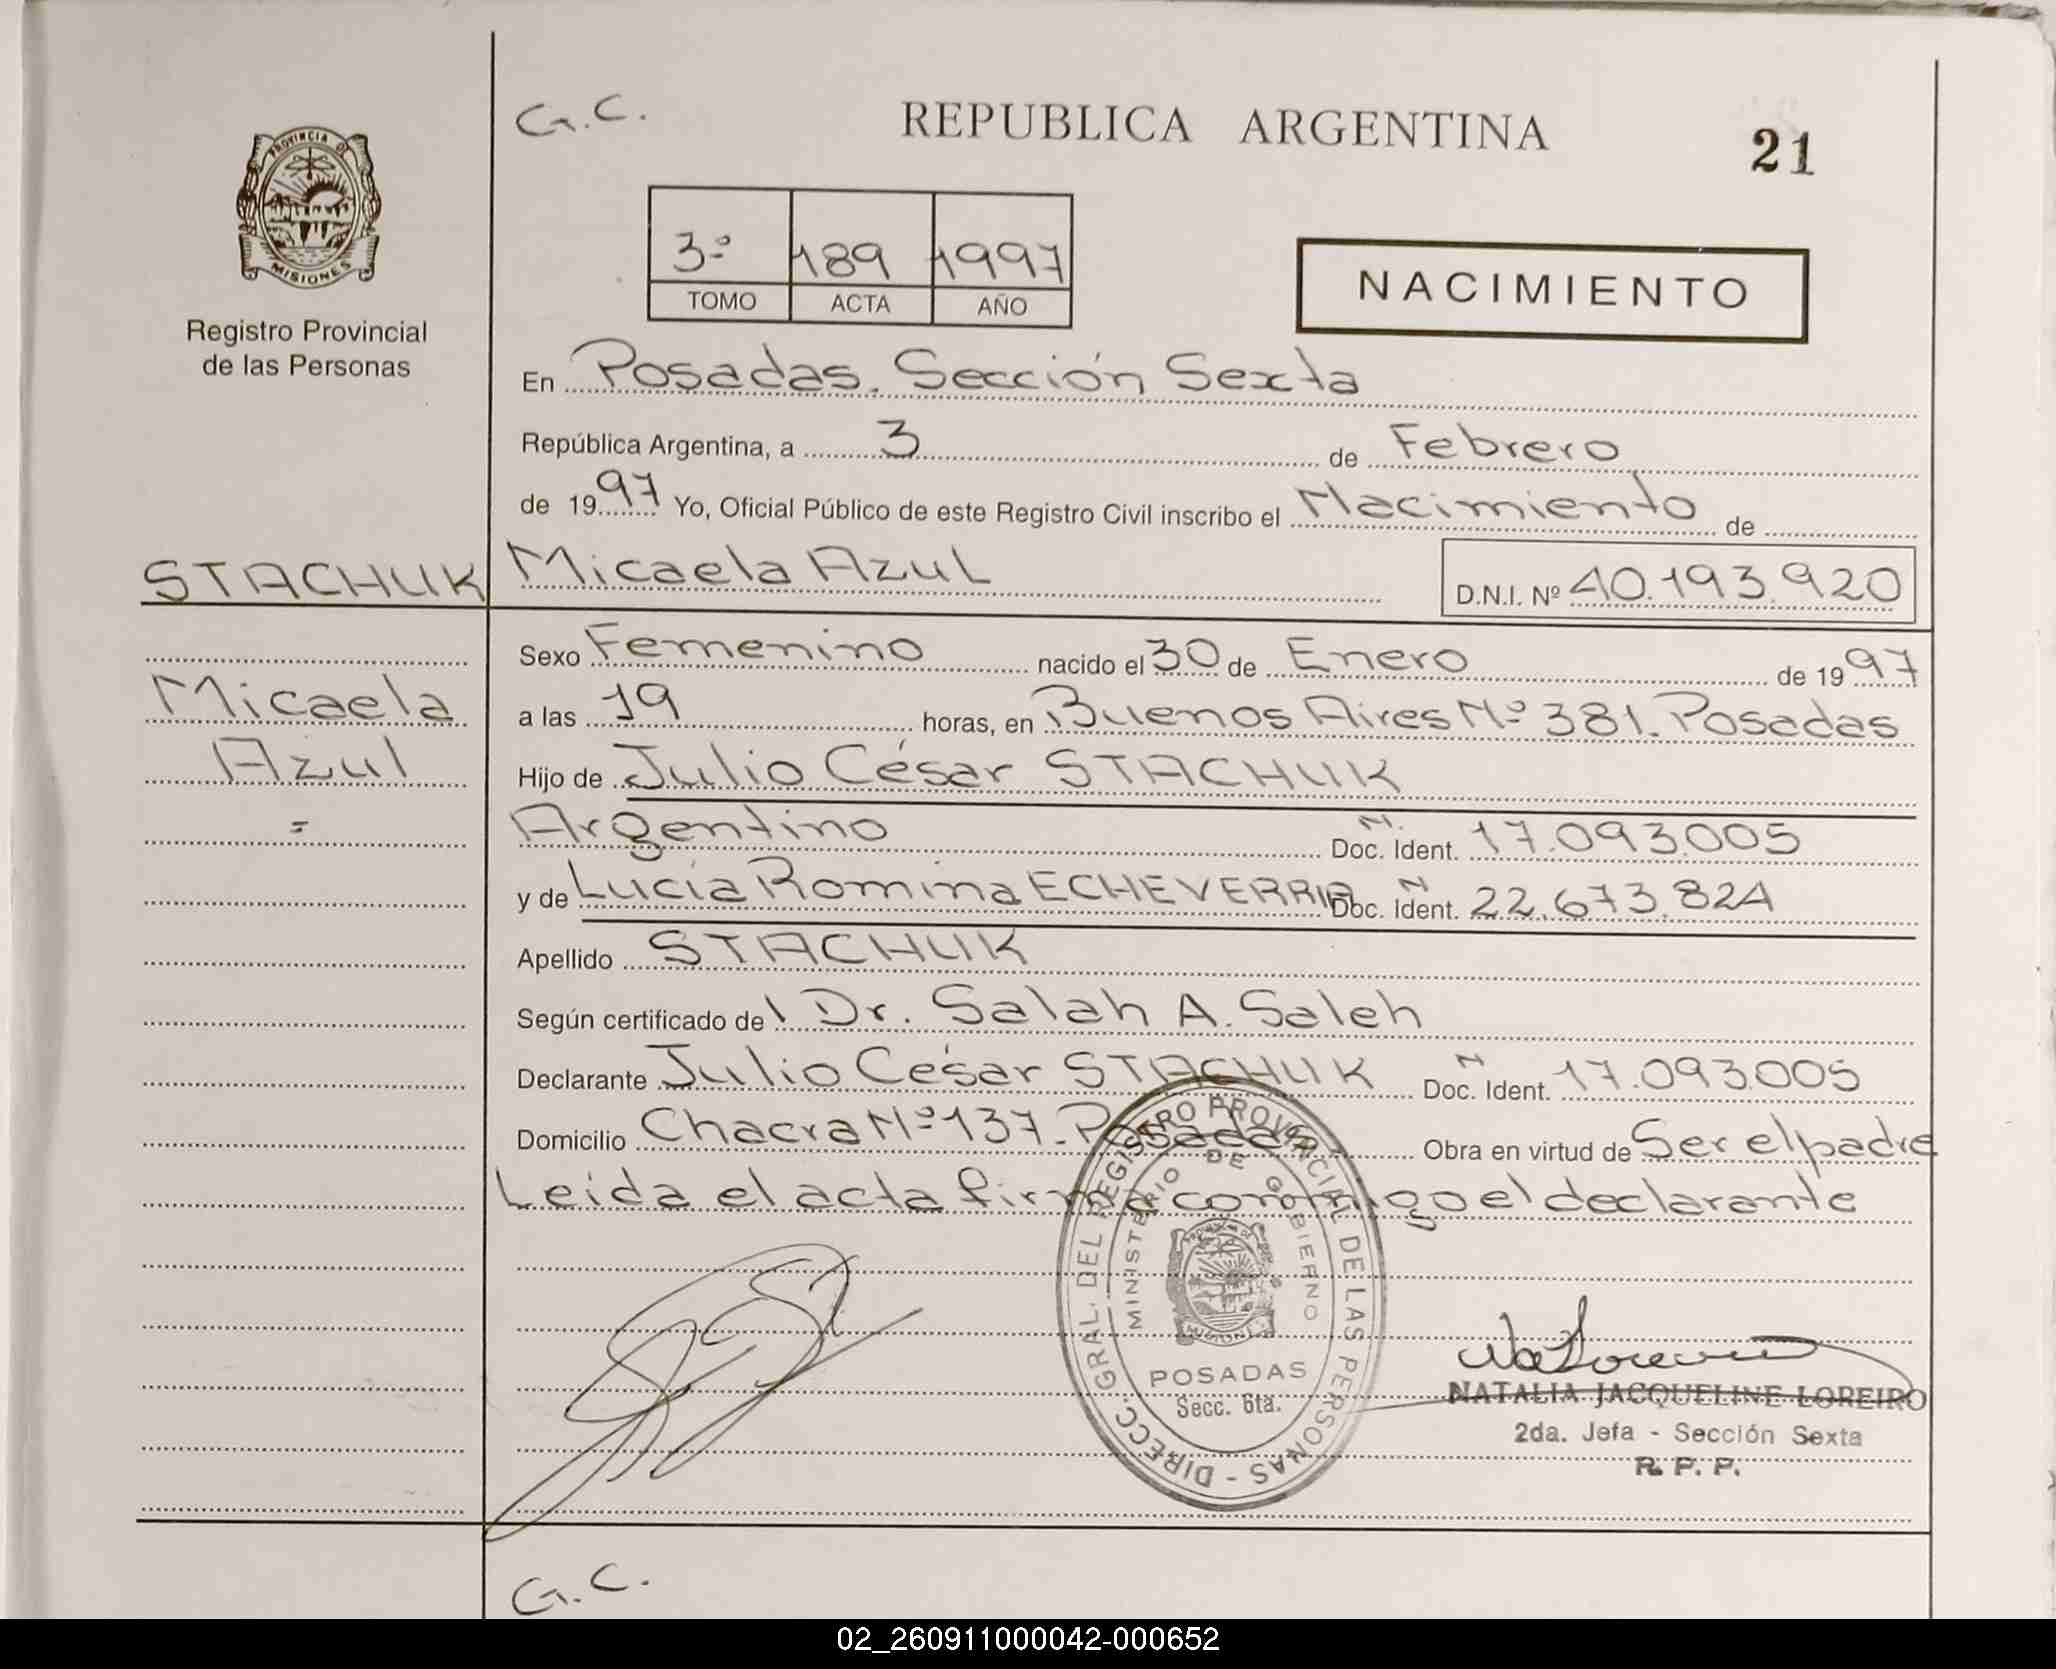 G.C.
REPUBLICA ARGENTINA
21
PROVINCIA DE
MISIONES
Registro Provincial
de las Personas
3º 189 1997
TOMO ACTA AÑO
NACIMIENTO
En Posadas. Sección Sexta
República Argentina, a 3 de Febrero
de 1997 Yo, Oficial Público de este Registro Civil inscribo el Nacimiento de
STACHUK Micaela Azul D.N.I. Nº 40.193.920
Sexo Femenino nacido el 30 de Enero de 1997
Micaela
a las 19 horas, en Buenos Aires Nº 381. Posadas
Azul
Hijo de Julio César STACHUK
=
Argentino Doc. Ident. N. 17.093.005
y de Lucía Romina ECHEVERRIA Doc. Ident. N 22.673.824
Apellido STACHUK
Según certificado del Dr. Salah A. Saleh
Declarante Julio César STACHUK Doc. Ident. N 17.093.005
Domicilio Chacra Nº 137. Posadas Obra en virtud de Ser el padre
Leida el acta firma conmigo el declarante
DIRECC. GRAL. DEL REGISTRO PROVINCIAL DE LAS PERSONAS -
MINISTERIO DE GOBIERNO
MISIONES
POSADAS
Secc. 6ta.
NATALIA JACQUELINE LOREIRO
2da. Jefa - Sección Sexta
R. P. P.
G.C.
02_260911000042-000652